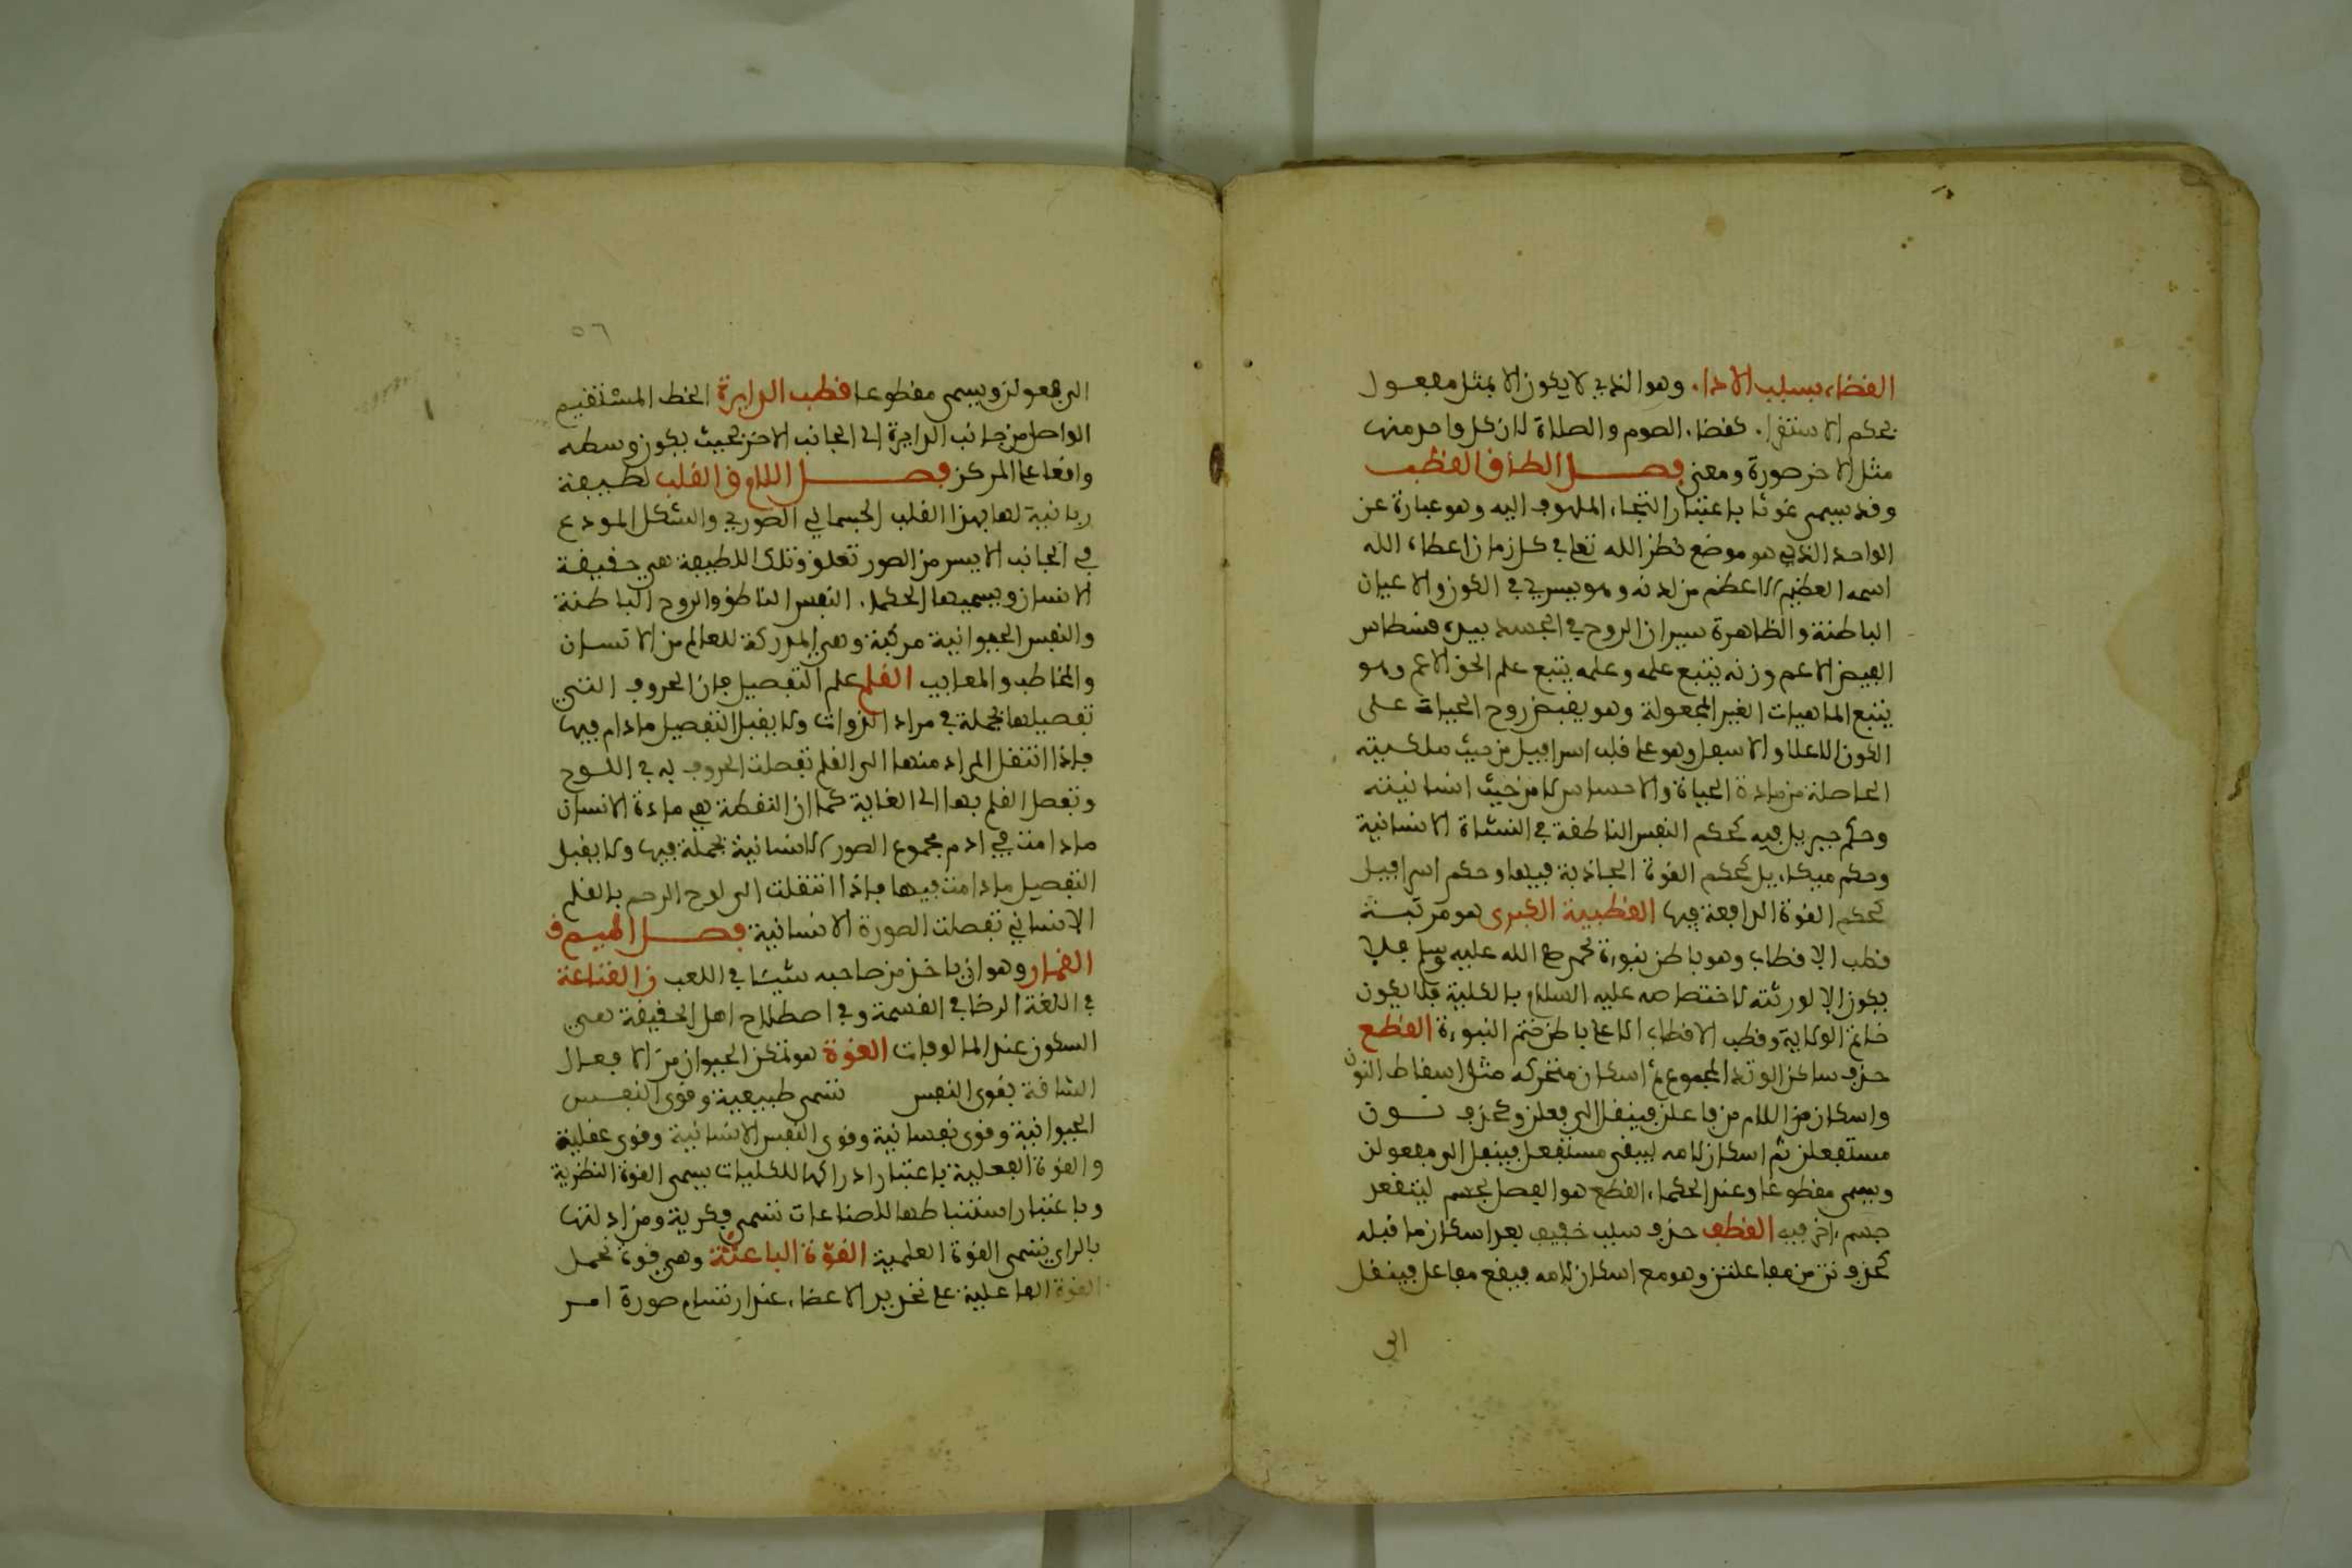 القضاء بسبب الاداء وهو الذي لا يكون الا بمثل معقول
بحكم الاستقراء كقضاء الصوم والصلاة لان كل واحد منها
مثل الاخر صورة ومعنى فصل الطاء ق القطب
وقد يسمى غوثا باعتبار التجاء الملهوف اليه وهو عبارة عن
الواحد الذي هو موضع نظر الله تعالى في كل زمان اعطاه الله
اسمه العظيم الاعظم من لدنه وهو يسري في الكون والاعيان
الباطنة والظاهرة سيران الروح في الجسد بيده قسطاس
الفيض الاعم وزنه يتبع علمه وعلمه يتبع علم الحق الاعم وهو
يتبع الماهيات الغير المجعولة وهو يفيض روح الحيات على
الكون الاعلا والاسفل وهو على قلب اسرافيل من حيث ملكيته
الحاصلة من مادة الحياة والاحساس لا من حيث انسانيته
وحكم جبريل فيه كحكم النفس الناطقة في النشاة الانسانية
وحكم ميكائيل كحكم القوة الجاذبة فيها وحكم اسرافيل
كحكم القوة الدافعة فيها القطبية الكبرى هو مرتبة
قطب الاقطاب وهو باطن نبوءة محمد صلى الله عليه وسلم فلا
يكون الا لورثته لاختصاصه عليه السلام بالكلية فلا يكون
خاتم الولاية وقطب الاقطاب الا على باطن ختم النبوءة القطع
حذف ساكن الوتد المجموع ثم اسكان متحركه مثل اسقاط النون
واسكان اللام من فاعلن فينقل الى فعلن وكحذف نون
مستفعلن ثم اسكان لامه ليبقى مستفعل فينقل الى مفعولن
ويسمى مقطوعا وعند الحكماء القطع هو الفصل بجسم لينفعد
جسم اخر فيه القطف حذف سبب خفيف بعد اسكان ما قبله
كحذف تن من مفاعلتن وهو مع اسكان لامه فيبقى مفاعل فينقل
الى
٥٦
الى فعولن ويسمى مقطوعا قطب الدايرة الخط المستقيم
الواصل من جانب الدايرة الى الجانب الاخر بحيث يكون وسطه
واقعا على المركز فصل اللام ق القلب لطيفة
ربانية لها بهذا القلب الجسماني الصوري والشكل المودع
في الجانب الايسر من الصدر تعلق وتلك اللطيفة هي حقيقة
الانسان ويسميها الحكماء النفس الناطق والروح الباطنة
والنفس الحيوانية مركبة وهي المدركة للعالم من الانسان
والمخاطب والمعاتب القلم علم التفصيل فان الحروف التي
تفصيلها مجملة في مداد الذوات ولا يقبل التفصيل ما دام فيها
فاذا انتقل المداد منها الى القلم تفصلت الحروف به في اللوح
وتفصل القلم بها الى الغاية كما ان النقطة هي مادة الانسان
ما دامت في ادم مجموع الصور الانسانية مجملة فيها ولا يقبل
التفصيل ما دامت فيها فاذا انتقلت الى لوح الرحم بالقلم
الانساني تفصلت الصورة الانسانية فصل الميم ق
القمار وهو ان ياخذ من صاحبه شيئا في اللعب ن القناعة
في اللغة الرضا في القسمة وفي اصطلاح اهل الحقيقة هي
السكون عند المالوفات القوة هو تمكن الحيوان من الافعال
الشاقة بقوى النفس تسمى طبيعية وقوى النفس
الحيوانية وقوى نفسانية وقوى النفس الانسانية وقوى عقلية
والقوة الفعلية باعتبار ادراكها للكليات يسمى القوة النظرية
وباعتبار استنباطها للصناعات تسمى فكرية ومن ادلتها
بالراي تسمى القوة العلمية القوة الباعثة وهي قوة تحمل
القوة الفاعلية على تحريك الاعضاء عند ارتسام صورة امر